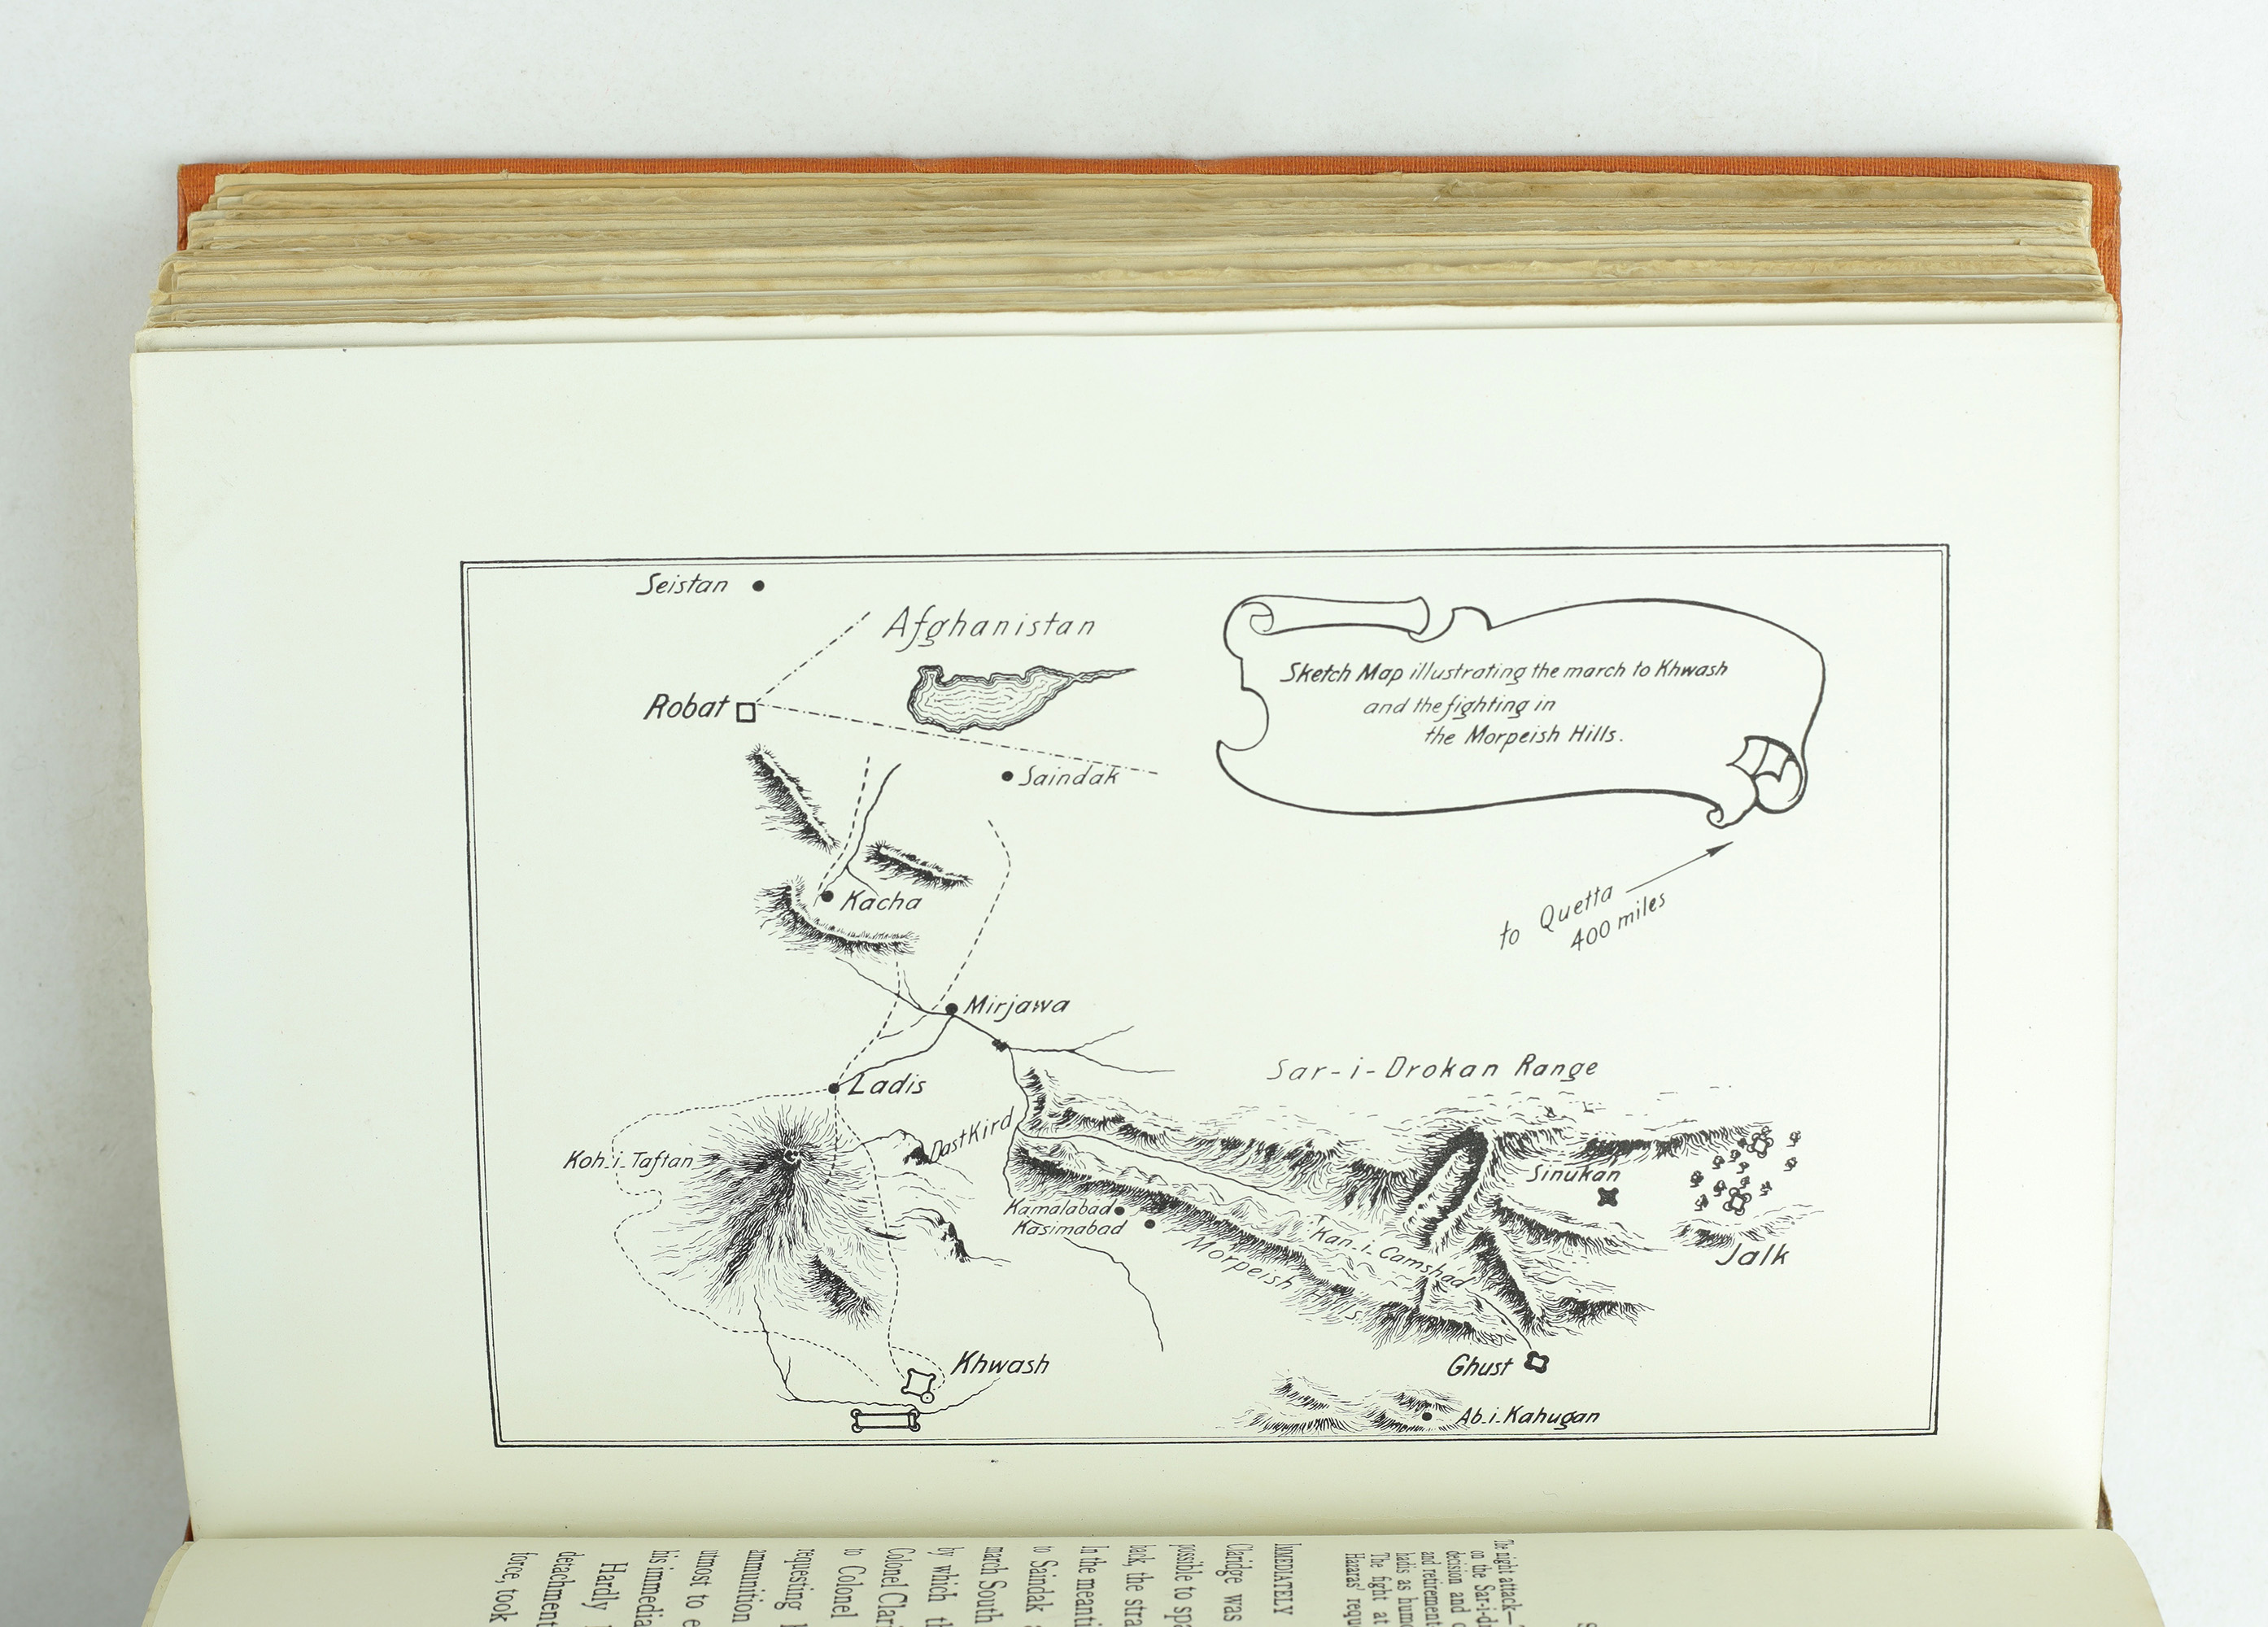 Seistan
Afghanistan
Robat
Saindak
Sketch Map illustrating the march to Khwash
and the fighting in
the Morpeish Hills.
to Quetta
400 miles
Kacha
Mirjawa
Ladis
Sar-i-Drokan Range
Koh-i-Taftan
DastKird
Sinukan
Kamalabad
Kasimabad
Morpeish Hills
Kan-i-Camshad
Jalk
Khwash
Ghust
Ab-i-Kahugan
The night attack—
on the Sar-i-
decision and
and retirement
hadis as
The fight at
Hazaras'
IMMEDIATELY
Claridge was
possible to
back, the
In the
to Saindak
march South
by which
Colonel
to Colonel
requesting
ammunition
utmost to
his
Hardly
detachment
force, took